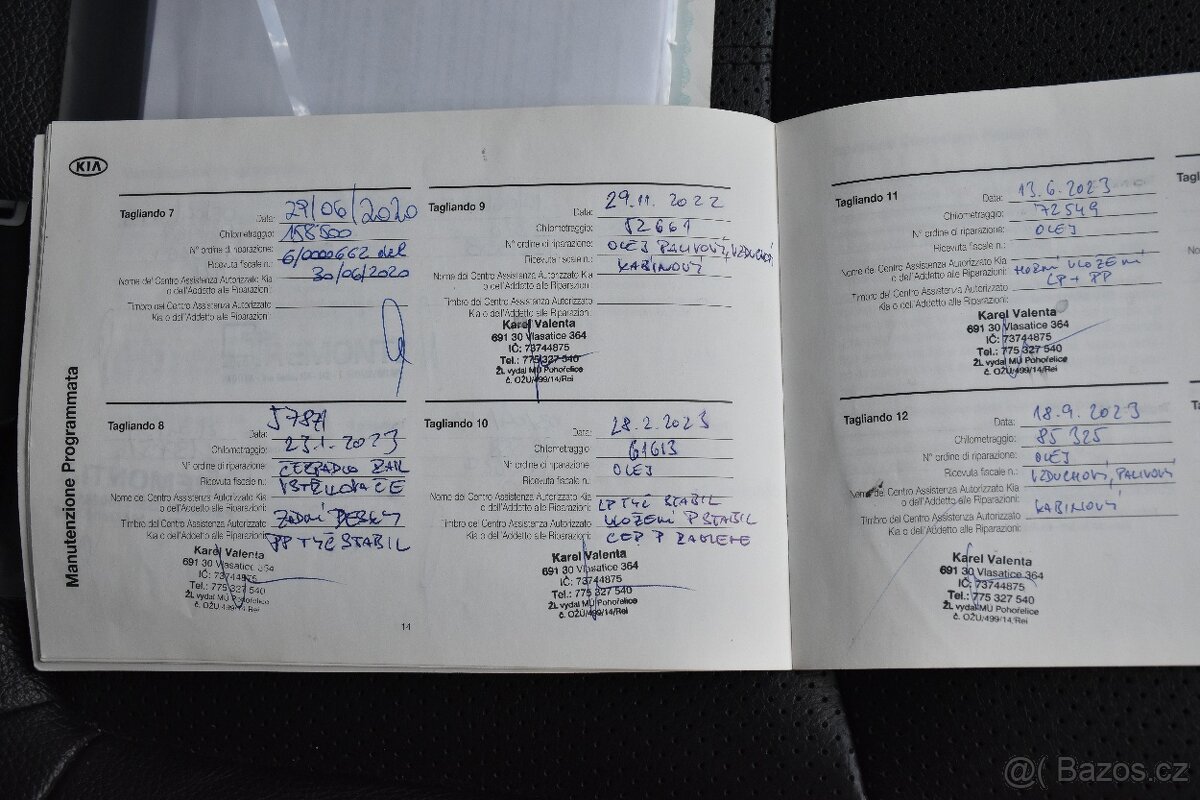 KIA
Manutenzione Programmata
Tagliando 7
Data: 29/06/2020
Chilometraggio: 158500
N° ordine di riparazione: 6/0000662 del
Ricevuta fiscale n.: 30/06/2020
Nome del Centro Assistenza Autorizzato Kia
o dell'Addetto alle Riparazioni:
Timbro del Centro Assistenza Autorizzato
Kia o dell'Addetto alle Riparazioni:
Tagliando 8
Data: 23.1.2023
Chilometraggio:
N° ordine di riparazione: ČERPADLO RAIL
Ricevuta fiscale n.: VSTŘIKOVAČE
Nome del Centro Assistenza Autorizzato Kia
o dell'Addetto alle Riparazioni:
Timbro del Centro Assistenza Autorizzato ZADNÍ DESKY
Kia o dell'Addetto alle Riparazioni: PP TYČ STABIL
Karel Valenta
691 30 Vlasatice 364
IČ: 73744875
Tel.: 775 327 540
ŽL vydal MÚ Pohořelice
č. OŽÚ/499/14/Rei
14
Tagliando 9
Data: 29.11.2022
Chilometraggio: 52661
N° ordine di riparazione: OLEJ PALIVOVÝ, VZDUCHOVÝ
Ricevuta fiscale n.: KABINOVÝ
Nome del Centro Assistenza Autorizzato Kia
o dell'Addetto alle Riparazioni:
Timbro del Centro Assistenza Autorizzato
Kia o dell'Addetto alle Riparazioni:
Karel Valenta
691 30 Vlasatice 364
IČ: 73744875
Tel.: 775 327 540
ŽL vydal MÚ Pohořelice
č. OŽÚ/499/14/Rei
Tagliando 10
Data: 28.2.2023
Chilometraggio: 61613
N° ordine di riparazione: OLEJ
Ricevuta fiscale n.:
Nome del Centro Assistenza Autorizzato Kia
o dell'Addetto alle Riparazioni: LP TYČ STABIL
Timbro del Centro Assistenza Autorizzato ULOŽENÍ P STABIL
Kia o dell'Addetto alle Riparazioni: ČEP P RAMENE
Karel Valenta
691 30 Vlasatice 364
IČ: 73744875
Tel.: 775 327 540
ŽL vydal MÚ Pohořelice
č. OŽÚ/499/14/Rei
Tagliando 11
Data: 13.6.2023
Chilometraggio: 72549
N° ordine di riparazione: OLEJ
Ricevuta fiscale n.:
Nome del Centro Assistenza Autorizzato Kia
o dell'Addetto alle Riparazioni: HORNÍ ULOŽENÍ
Timbro del Centro Assistenza Autorizzato LP + PP
Kia o dell'Addetto alle Riparazioni:
Karel Valenta
691 30 Vlasatice 364
IČ: 73744875
Tel.: 775 327 540
ŽL vydal MÚ Pohořelice
č. OŽÚ/499/14/Rei
Tagliando 12
Data: 18.9.2023
Chilometraggio: 85325
N° ordine di riparazione: OLEJ
Ricevuta fiscale n.: VZDUCHOVÝ, PALIVOVÝ
Nome del Centro Assistenza Autorizzato Kia
o dell'Addetto alle Riparazioni: KABINOVÝ
Timbro del Centro Assistenza Autorizzato
Kia o dell'Addetto alle Riparazioni:
Karel Valenta
691 30 Vlasatice 364
IČ: 73744875
Tel.: 775 327 540
ŽL vydal MÚ Pohořelice
č. OŽÚ/499/14/Rei
Bazos.cz